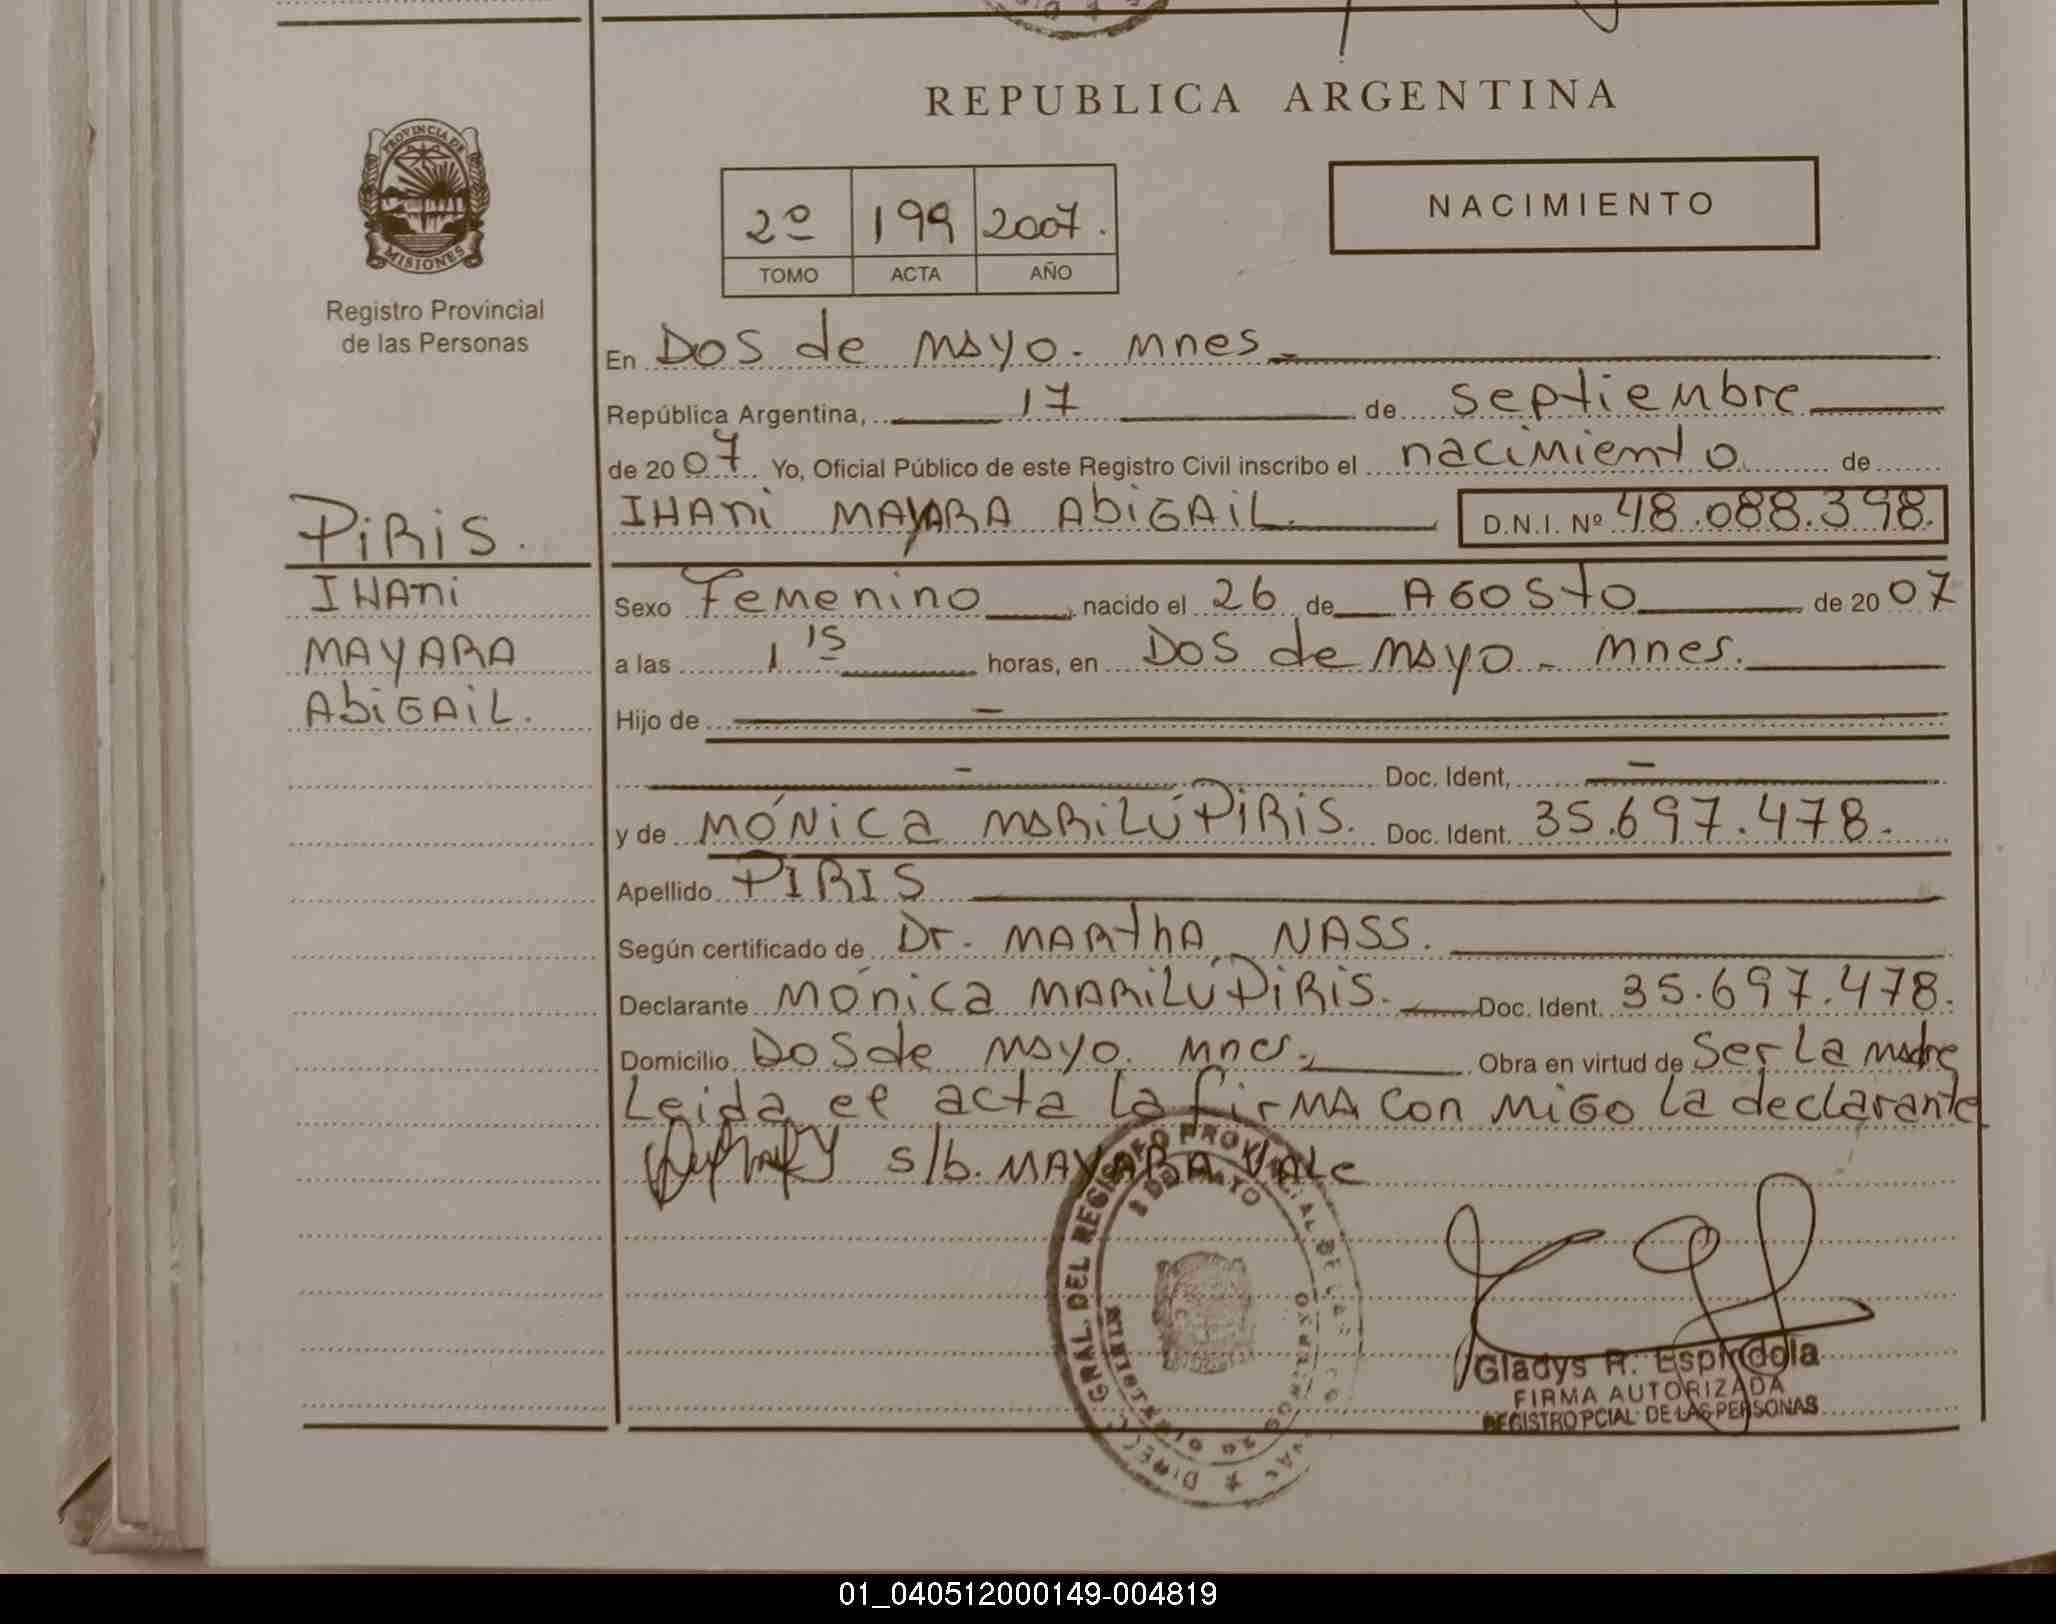 REPUBLICA ARGENTINA
PROVINCIA DE
MISIONES
Registro Provincial
de las Personas
2º 199 2007.
TOMO ACTA AÑO
NACIMIENTO
En Dos de mayo. mnes
República Argentina, 17 de septiembre
de 2007 Yo, Oficial Público de este Registro Civil inscribo el nacimiento de
PiRiS.
IHAni MAYARA AbiGAiL D.N.I. Nº 48.088.398.
IHAni
MAYARA
AbiGAiL.
Sexo Femenino, nacido el 26 de AGOSto de 2007
a las 1 15 horas, en Dos de mayo - mnes.
Hijo de –
– Doc. Ident, –
y de MÓNica MARiLÚ PiRiS. Doc. Ident. 35.697.478.
Apellido PIRIS
Según certificado de Dr. MARthA NASS.
Declarante Mónica MARiLÚ PiRiS. Doc. Ident. 35.697.478.
Domicilio Dos de mayo. mnes. Obra en virtud de Ser La madre
Leida el acta la firMA con MiGo la declarante
s/b. MAYARA VALe
DIRECC. GRAL. DEL REGISTRO PROVINCIAL DE LAS
2 DE MAYO
Gladys R. Espindola
FIRMA AUTORIZADA
REGISTRO PCIAL. DE LAS PERSONAS
01_040512000149-004819